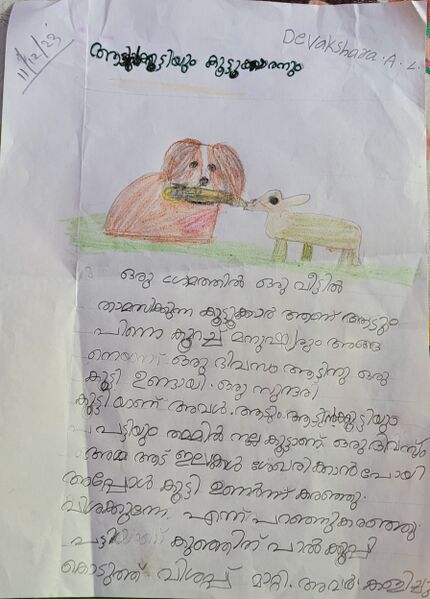 11/12/23
Devakshara. A. L.
ആട്ടിൻക്കുട്ടിയും കൂട്ടുക്കാരനും
ഒരു ഗ്രേമത്തിൽ ഒരു വീട്ടിൽ
താമസിക്കുന്ന കൂട്ടുക്കാർ ആണ് ആട്ടും
പിന്നെ കുറച്ച് മനുഷ്യരും അങ്ങ
നെ ഒരു ദിവസം ആട്ടിനു ഒരു
കുട്ടി ഉണ്ടായി. ഒരു സുന്ദരി
കുട്ടിയാണ് അവൾ. ആട്ടും ആട്ടിൻക്കുട്ടിയും
പട്ടിയും തമ്മിൽ നല്ല കൂട്ടാണ്. ഒരു ദിവസം
അമ്മ ആട് ഇലകൾ ശേഖരിക്കാൻ പോയി
അപ്പോൾ കുട്ടി ഉണർന്ന് കരഞ്ഞു.
വിശക്കുന്നു, എന്ന് പറഞ്ഞു കരഞ്ഞു.
പട്ടി കുഞ്ഞിന് പാൽക്കുപ്പി
കൊടുത്ത് വിശപ്പ് മാറ്റി. അവർ കളിച്ചു